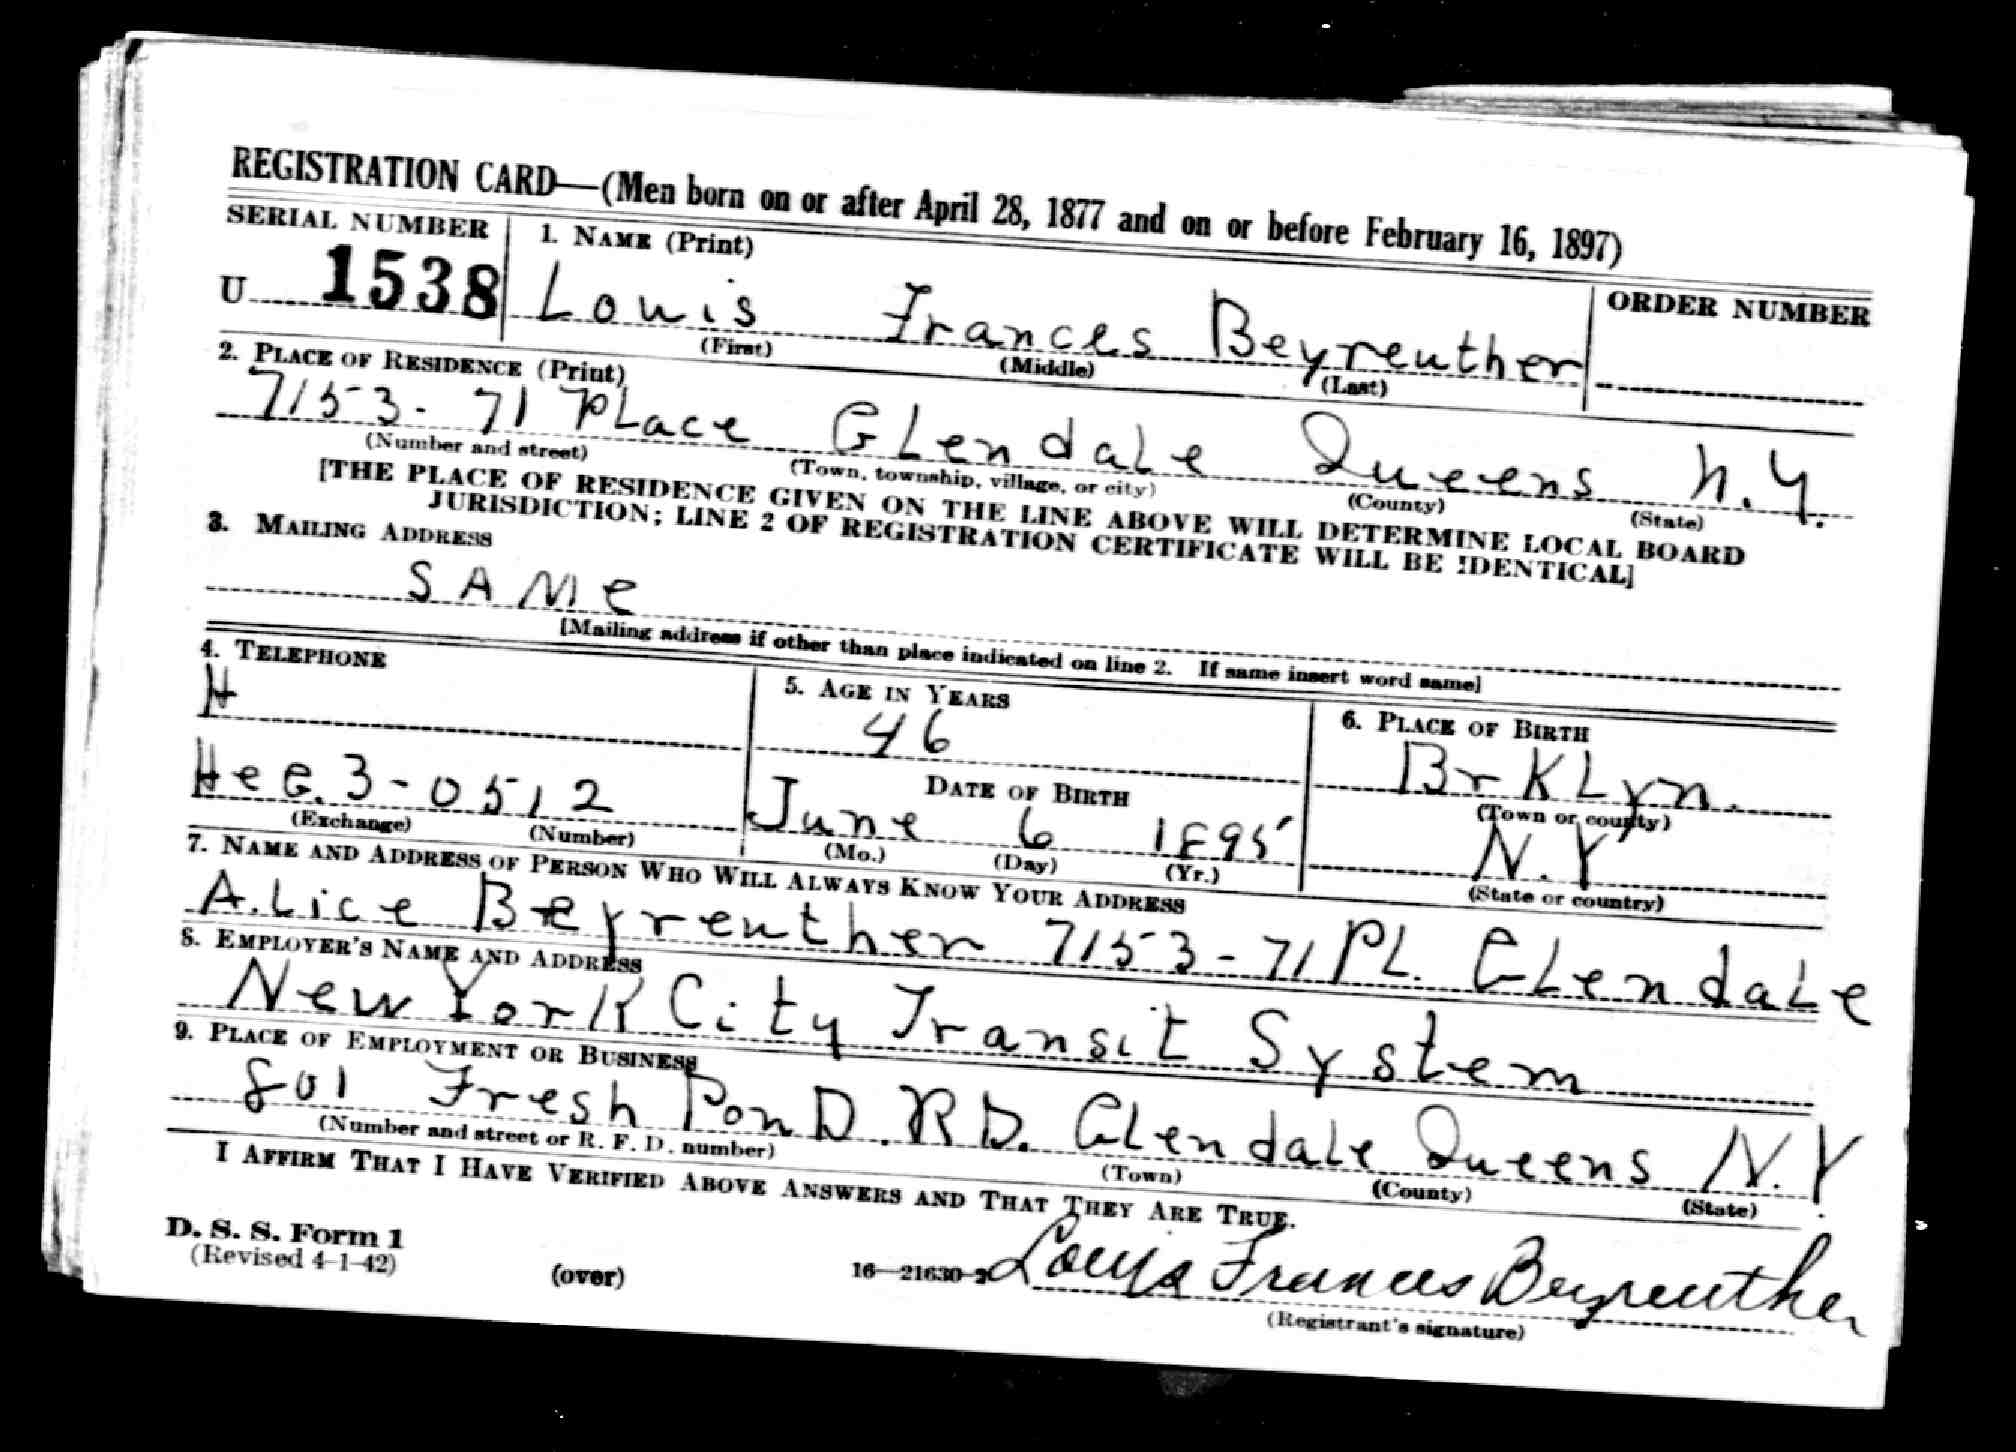 REGISTRATION CARD—(Men born on or after April 28, 1877 and on or before February 16, 1897)
SERIAL NUMBER
1. NAME (Print)
ORDER NUMBER
U 1538
Louis Frances Beyreuther
(First) (Middle) (Last)
2. PLACE OF RESIDENCE (Print)
7153-71 PLace GLendaLe Queens N.Y.
(Number and street) (Town, township, village, or city) (County) (State)
[THE PLACE OF RESIDENCE GIVEN ON THE LINE ABOVE WILL DETERMINE LOCAL BOARD
JURISDICTION; LINE 2 OF REGISTRATION CERTIFICATE WILL BE IDENTICAL]
3. MAILING ADDRESS
SAMe
[Mailing address if other than place indicated on line 2. If same insert word same]
4. TELEPHONE
H
5. AGE IN YEARS
46
6. PLACE OF BIRTH
BrKLyn.
(Town or county)
HeG. 3-0512
(Exchange) (Number)
DATE OF BIRTH
June 6 1895
(Mo.) (Day) (Yr.)
N.Y
(State or country)
7. NAME AND ADDRESS OF PERSON WHO WILL ALWAYS KNOW YOUR ADDRESS
A.Lice Beyreuther 7153-71 PL. GLendaLe
8. EMPLOYER'S NAME AND ADDRESS
New York City Transit System
9. PLACE OF EMPLOYMENT OR BUSINESS
801 Fresh PonD. RD. GLendale Queens N.Y.
(Number and street or R. F. D. number) (Town) (County) (State)
I AFFIRM THAT I HAVE VERIFIED ABOVE ANSWERS AND THAT THEY ARE TRUE.
D. S. S. Form 1
(Revised 4-1-42)
(over)
16—21630-2
Louis Frances Beyreuther
(Registrant's signature)